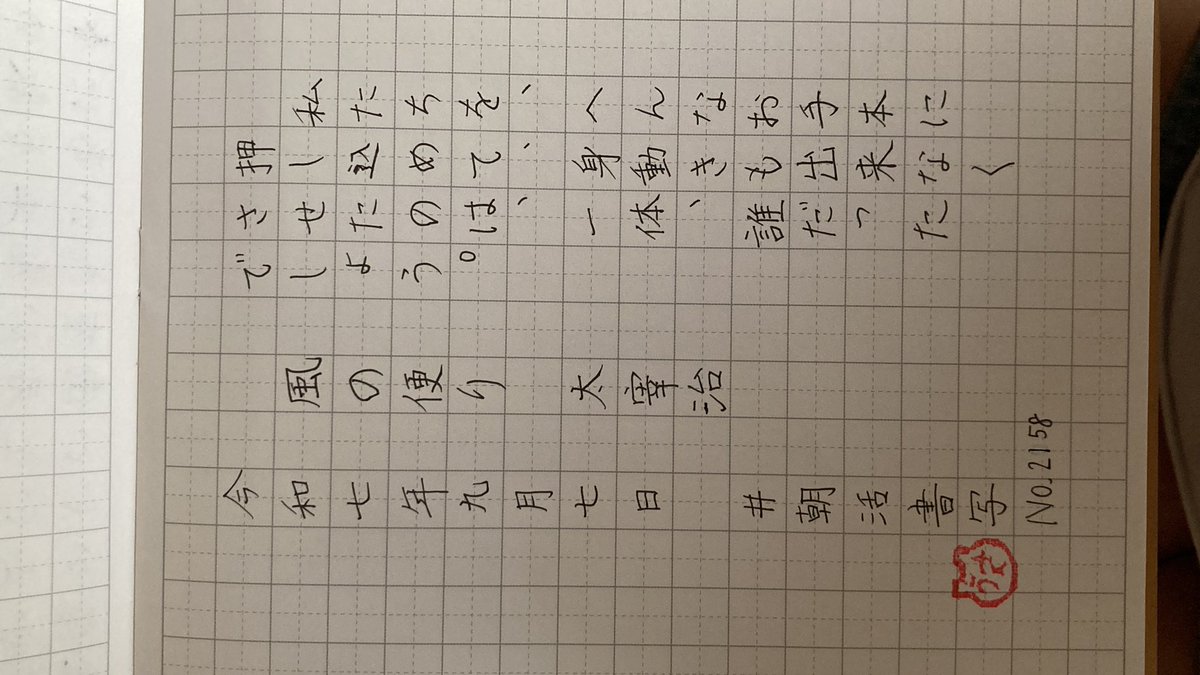 私たちを、へんなお手本に
押し込めて、身動きも出来なく
させたのは、一体、誰だった
でしよう。
風の便り　太宰治
令和七年九月七日　#朝活書写 NO.2158
うさ